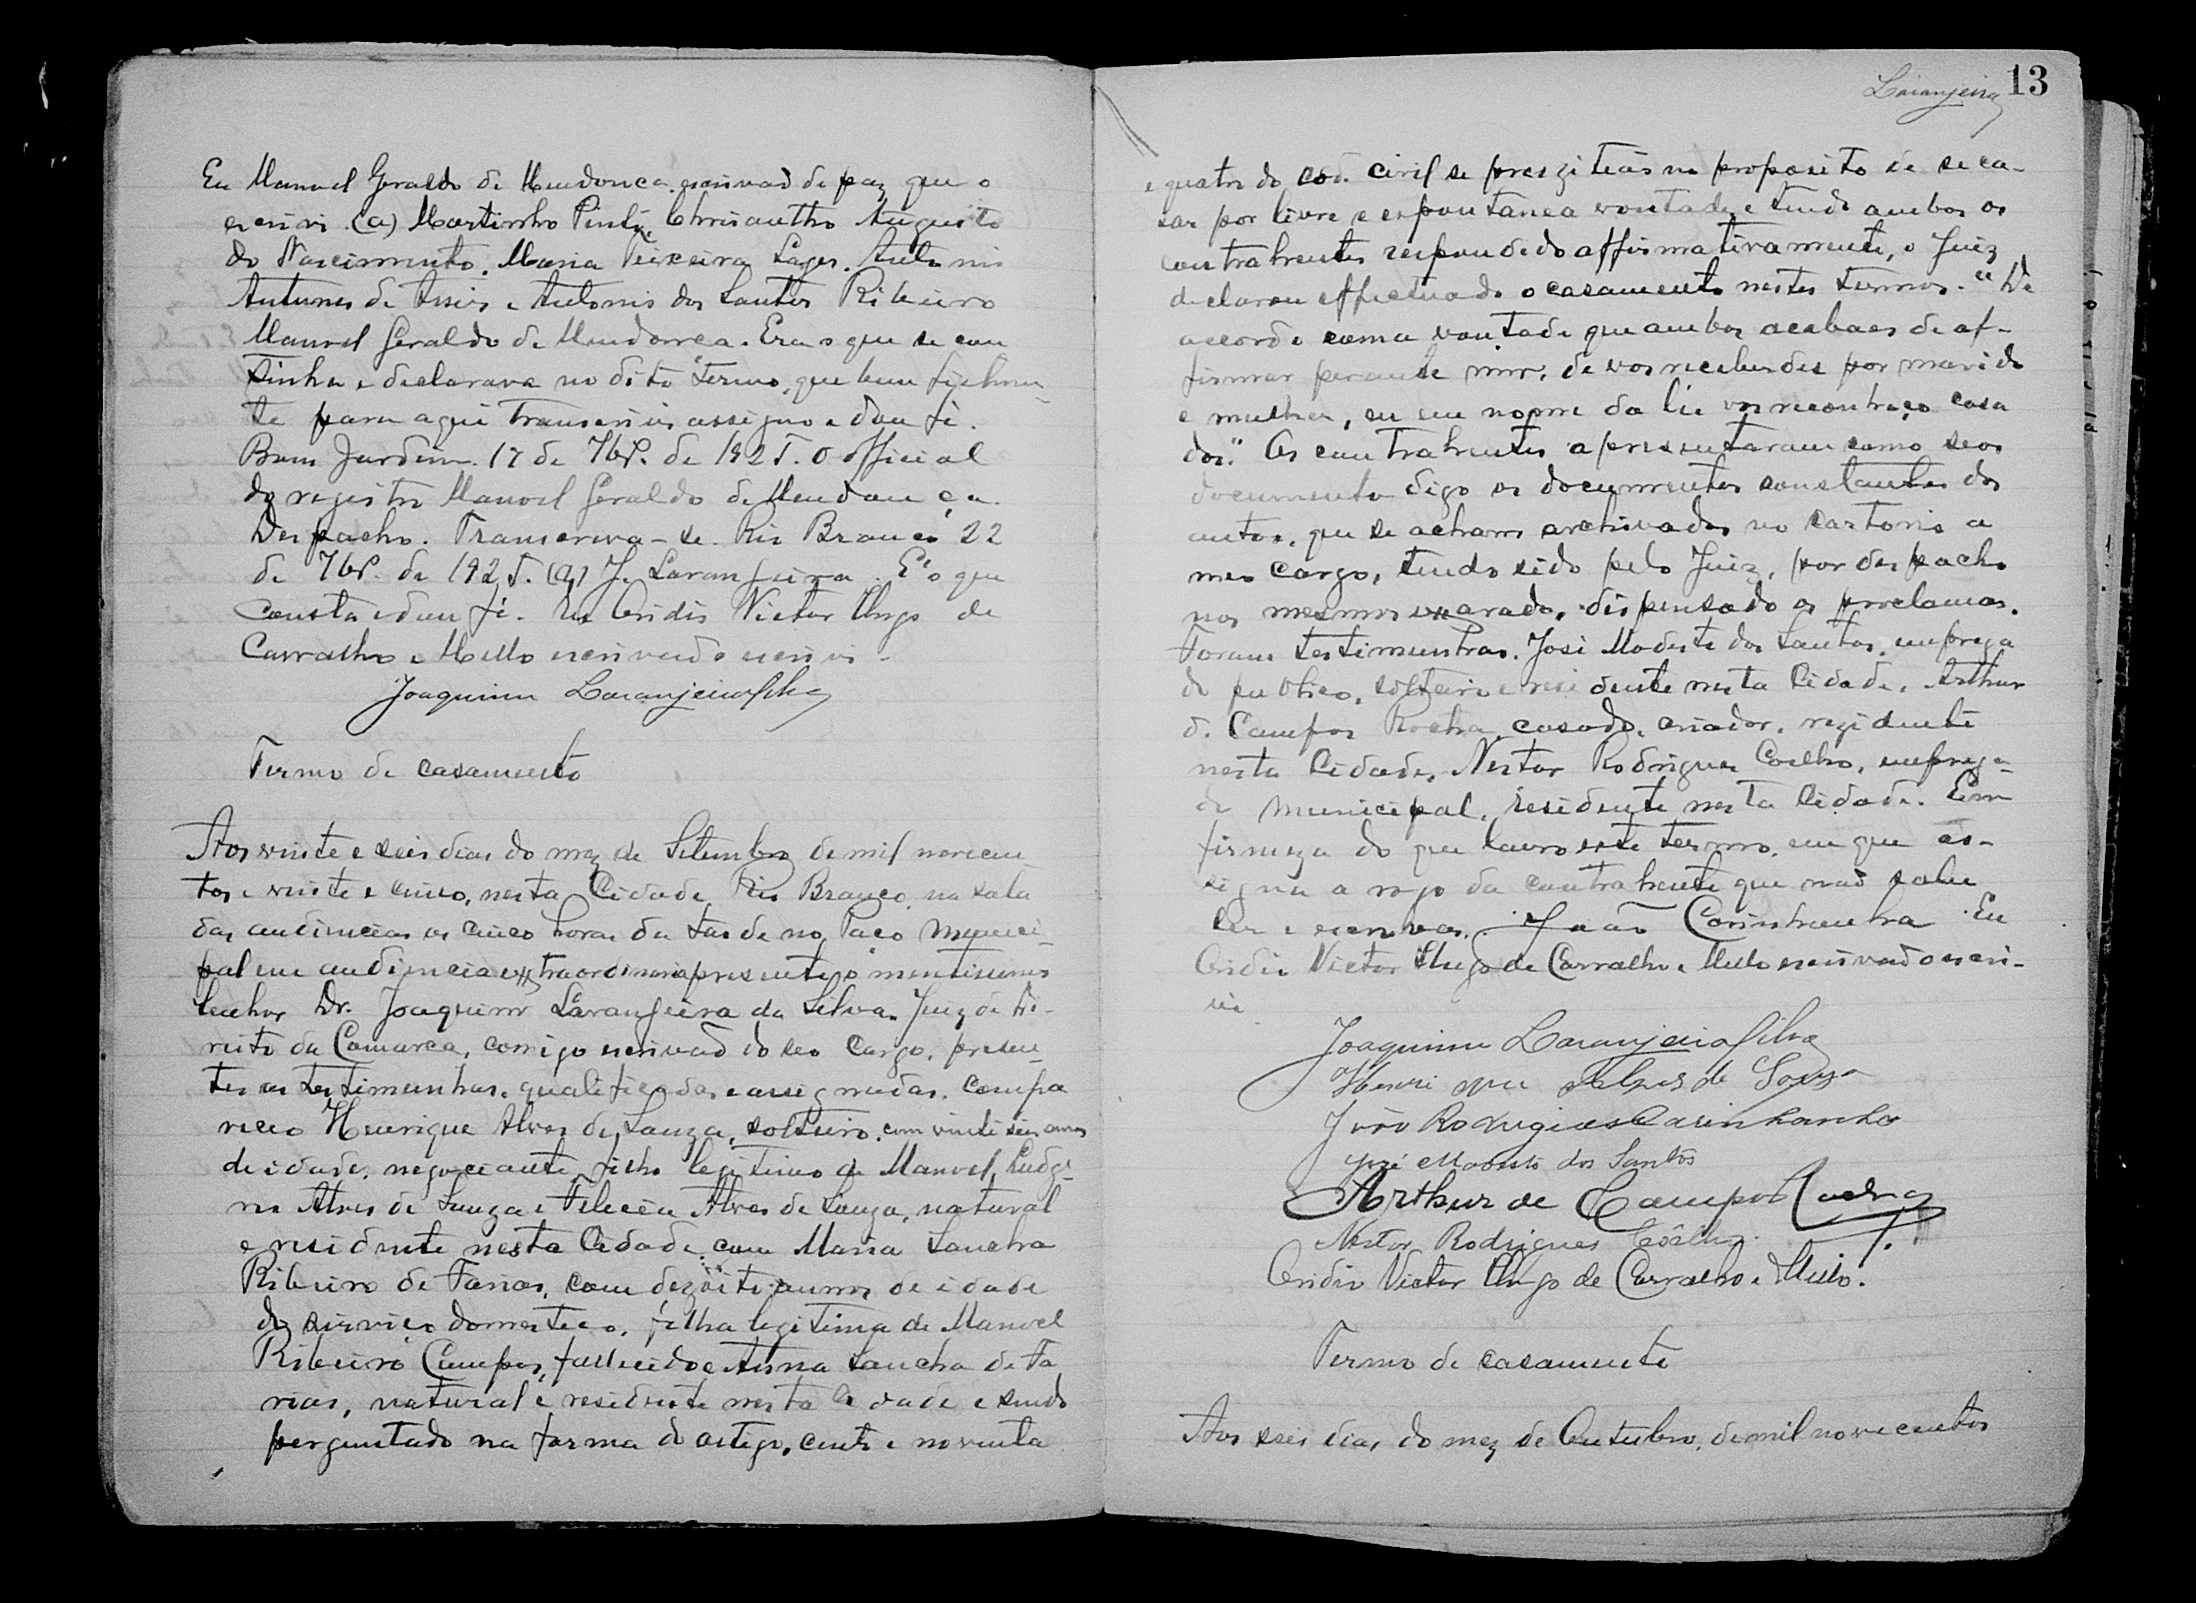 Eu Manoel Geraldo de Mendonça escrivaõ de paz que o
escrivi. (a) Martinho Pinto, Chrisantho Augusto
do Nascimento. Maria Teixeira Lages. Antonio
Antunes de Assis e Antonio dos Santos Ribeiro
Manoel Geraldo de Mendonca. Era o que se con
tinha e declarava no dito termo, que bem fielmen-
te para aqui transcrivi assigno e dou fé.
Bom Jardim. 17 de 7bro. de 1925. O official
do registro Manoel Geraldo de Mendonça.
Despacho. Transcreva-se. Rio Branco, 22
de 7bro. de 1925. (a) J. Laranjeira. E' o que
consta e dou fé. Eu Ovidio Victor Hugo de
Carvalho e Mello escrivaõ o escrivi.
Joaquim Laranjeira Silva
Termo de casamento
Aos vinte e seis dias do mez de Setembro de mil novecen
tos e vinte e cinco, nesta Cidade Rio Branco, na sala
das audiencias as cinco horas da tarde no Paço Munici-
pal em audiencia extraordinaria presente o meritissimo
Senhor Dr. Joaquim Laranjeira da Silva Juiz de Di-
reito da Comarca, comigo escrivaõ do seo cargo, presen-
tes as testimunhas, qualificadas e assignadas, compa
receo Henrique Alves de Souza, solteiro, com vinte seis annos
de idade, negociante, filho legitimo de Manoel
Alves de Souza e Alves de Souza, natural
e residente nesta Cidade, com Maria Sancha
Ribeiro de Farias, com dezoito annos de idade
de serviço domestico, filha legitima de Manoel
Ribeiro Campos, fallecido e Anna Sancha de Fa
rias, natural e residente nesta Cidade e sendo
perguntado na forma do artigo, cento e noventa
Laranjeira 13
e quatro do cod. civil se prezistiaõ no proposito de se ca-
sar por livre e espontanea vontade e tendo ambos os
contrahentes respondido affirmativamente, o Juiz
declarou effectuado o casamento nestes termos. "De
accordo com a vontade que ambos acabaes de af-
firmar perante mim, de vos receberdes por marido
e mulher, eu em nome da lei vos reconheço casa
dos." Os contrahentes apresentaram como seos
documento digo os documentos constantes dos
autos, que se acham archivados no cartorio a
meo cargo, tendo sido pelo Juiz, por despacho
nos mesmos exarado, dispensado os proclamas.
Foram testimunhas. José Modesto dos Santos, emprega
do publico, solteiro e residente nesta Cidade, Arthur
d. Campos Rocha, casado, criador, rezidente
nesta Cidade, Nestor Rodrigues Coelho, emprega-
do municipal, residente nesta Cidade. Em
firmeza do que lavro este termo, em que as-
signa a rogo da contrahente que naõ sabe
ler e escrever, João Carinhanha. Eu
Ovidio Victor Hugo de Carvalho e Mello escrivaõ o escri-
vi.
Joaquim Laranjeira Silva
Henrique Alves de Souza
João Rodrigues Carinhanha
José Modesto dos Santos
Arthur de Campos Rocha
Nestor Rodrigues Coêlho.
Ovidio Victor Hugo de Carvalho e Mello.
Termo de casamento
Aos seis dias do mez de Outubro, de mil novecentos